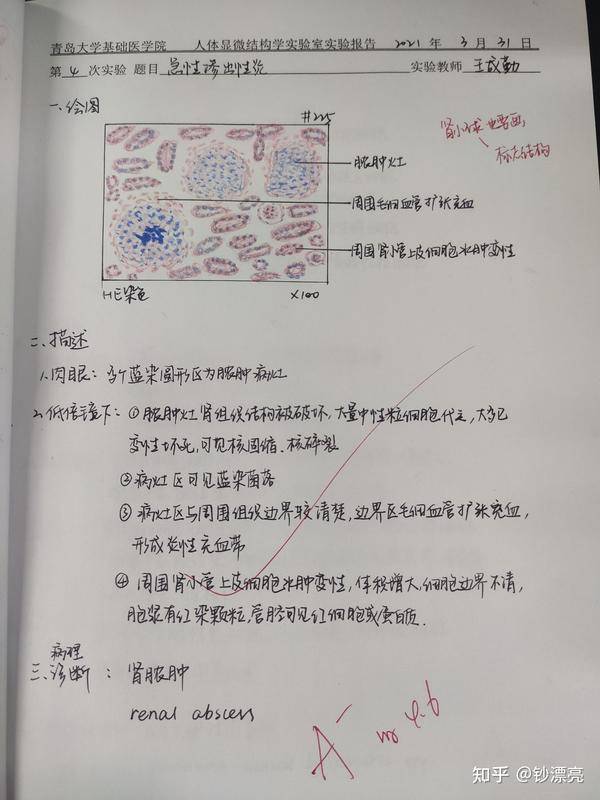 青岛大学基础医学院 人体显微结构学实验室实验报告 2021 年 3 月 31 日
第 4 次实验 题目 急性渗出性炎 实验教师 王成勤
一、绘图
#225
肾小球
标志结构
脓肿灶
周围毛细血管扩张充血
周围肾小管上皮细胞水肿变性
HE染色 ×100
二、描述
1、肉眼：多个蓝染圆形区为脓肿病灶
2、低倍镜下：①脓肿灶肾组织结构被破坏，大量中性粒细胞代之，大多已
变性坏死，可见核固缩、核碎裂
②病灶区可见蓝染菌落
③病灶区与周围组织边界较清楚，边界区毛细血管扩张充血，
形成炎性充血带
④周围肾小管上皮细胞水肿变性，体积增大，细胞边界不清，
胞浆有红染颗粒，管腔可见红细胞或蛋白质．
病理
三、诊断：肾脓肿
renal abscess
A⁻ 4.6
知乎 @钞漂亮